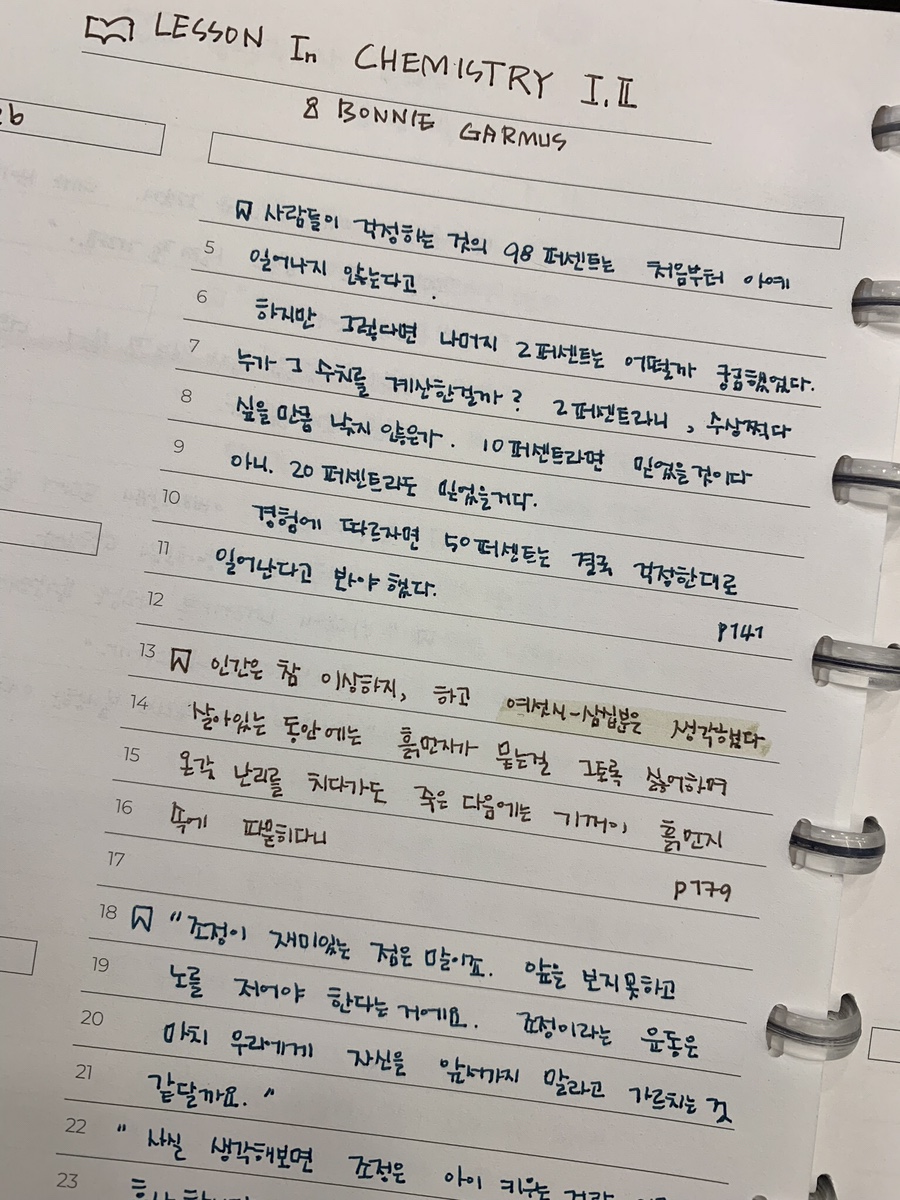 LESSON In CHEMISTRY I.II
8 BONNIE GARMUS
사람들이 걱정하는 것의 98퍼센트는 처음부터 아예
5
일어나지 않는다고.
6
하지만 그렇다면 나머지 2퍼센트는 어떨까 궁금했었다.
7
누가 그 수치를 계산한걸까? 2퍼센트라니, 수상쩍다
8
싶을만큼 낮지 않은가. 10퍼센트라면 믿었을것이다
9
아니. 20퍼센트라도 믿었을거다.
10
경험에 따르자면 50퍼센트는 결국 걱정한대로
11
일어난다고 봐야 했다.
12
p141
13
인간은 참 이상하지, 하고 여섯시-삼십분은 생각했다
14
살아있는 동안에는 흙먼지가 묻는걸 그토록 싫어하며
15
온갖 난리를 치다가도 죽은 다음에는 기꺼이 흙먼지
16
속에 파묻히다니
17
p179
18
"조정이 재미있는 점은 말이죠. 앞을 보지못하고
19
노를 저어야 한다는거에요. 조정이라는 운동은
20
마치 우리에게 자신을 앞서가지 말라고 가르치는 것
21
같달까요."
22
"사실 생각해보면 조정은 아이 키우는
23